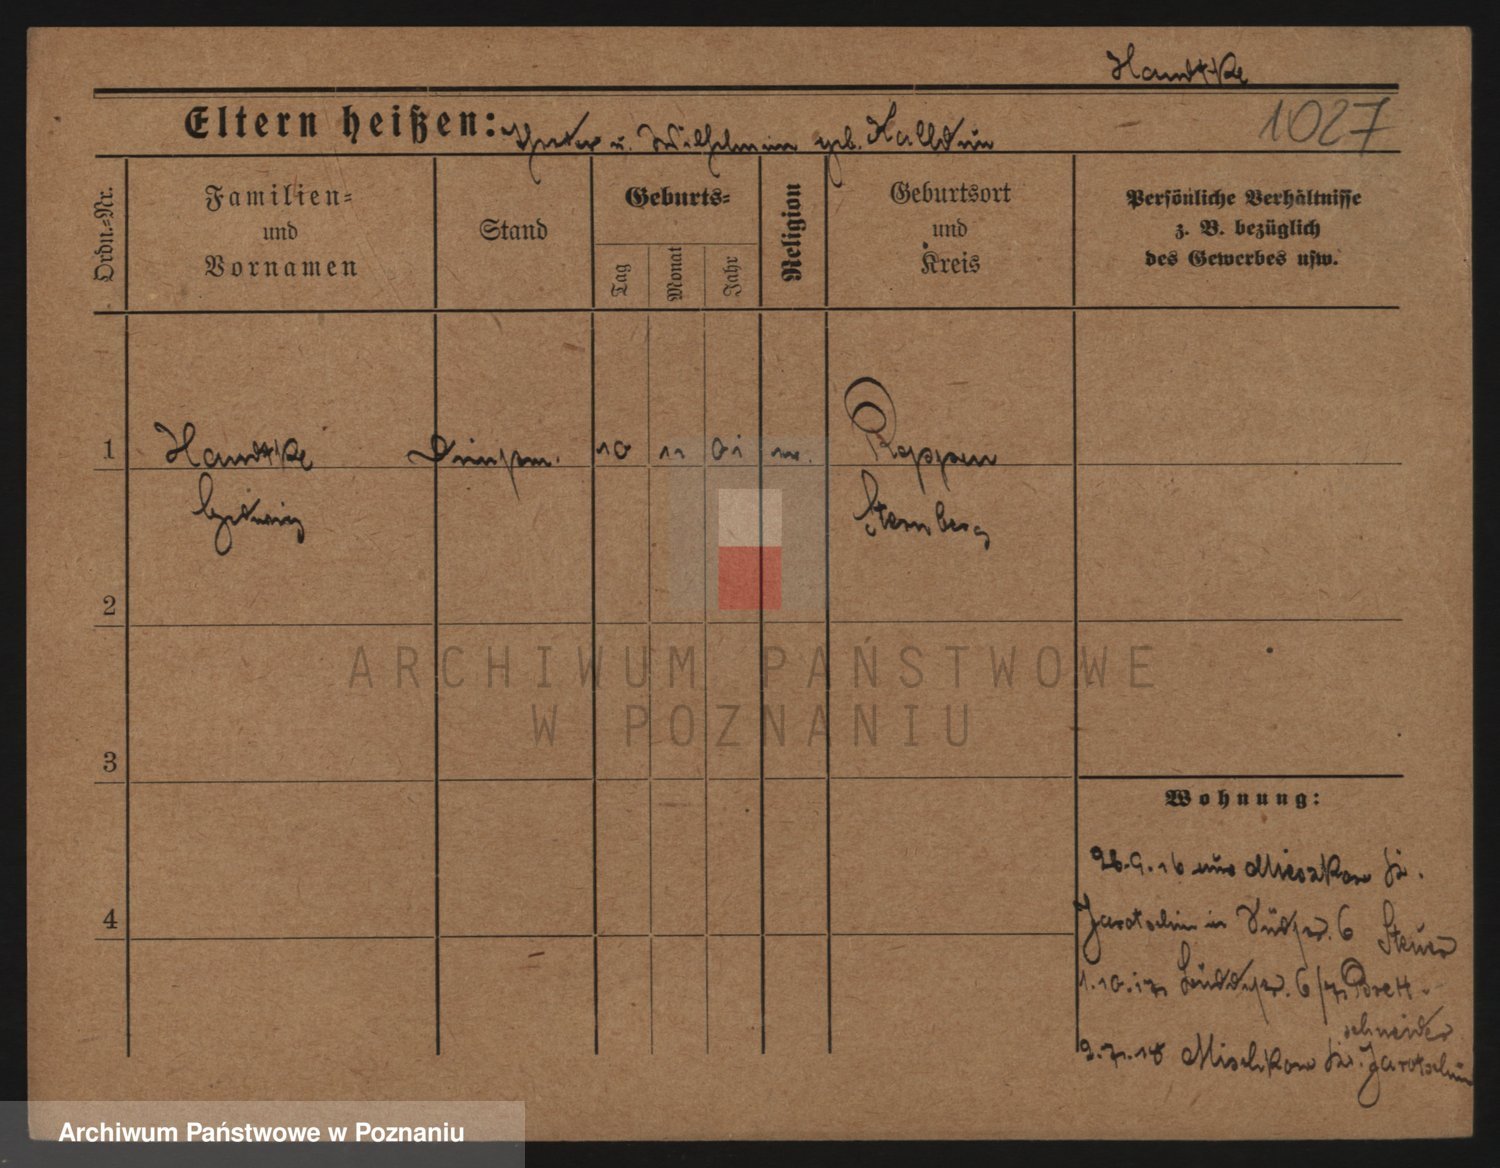 Handtke
Eltern heißen: u. Wilhelmine geb.
1027
Ordn.=Nr.
Familien=
und
Vornamen
Stand
Geburts=
Tag
Monat
Jahr
Religion
Geburtsort
und
Kreis
Persönliche Verhältnisse
z. B. bezüglich
des Gewerbes usw.
1 Handtke 10 11 01 Reppen
Hedwig Sternberg
2
3
4
Wohnung:
26.9.16 aus Mieszkow Kr.
Jarotschin in 6 Steuer
1.10.17 6 Brett-
schneider
9.7.18 Mieschkow Kr. Jarotschin
ARCHIWUM PAŃSTWOWE
W POZNANIU
Archiwum Państwowe w Poznaniu